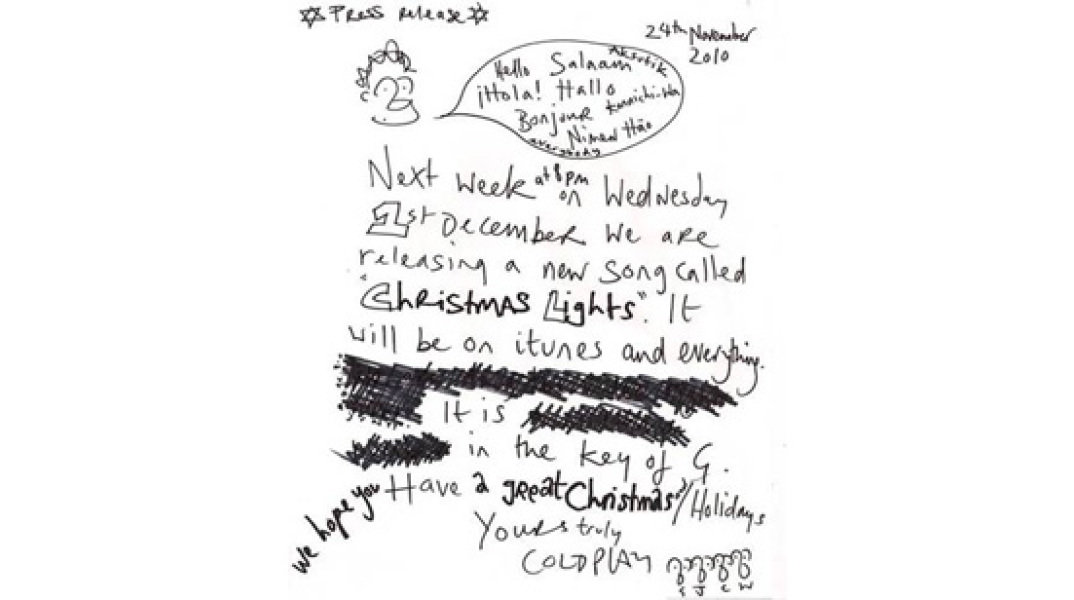 Press release
24th November
2010
Hello Salaam
¡Hola! Hallo
Bonjour Konnichi-Wa
Nimen Hǎo
everybody
Next week at 8pm on Wednesday
1st December we are
releasing a new song called
"Christmas Lights". It
will be on itunes and everything.
It is
in the key of G.
we hope you Have a great Christmas/Holidays
Yours truly
COLDPLAY
G J C W